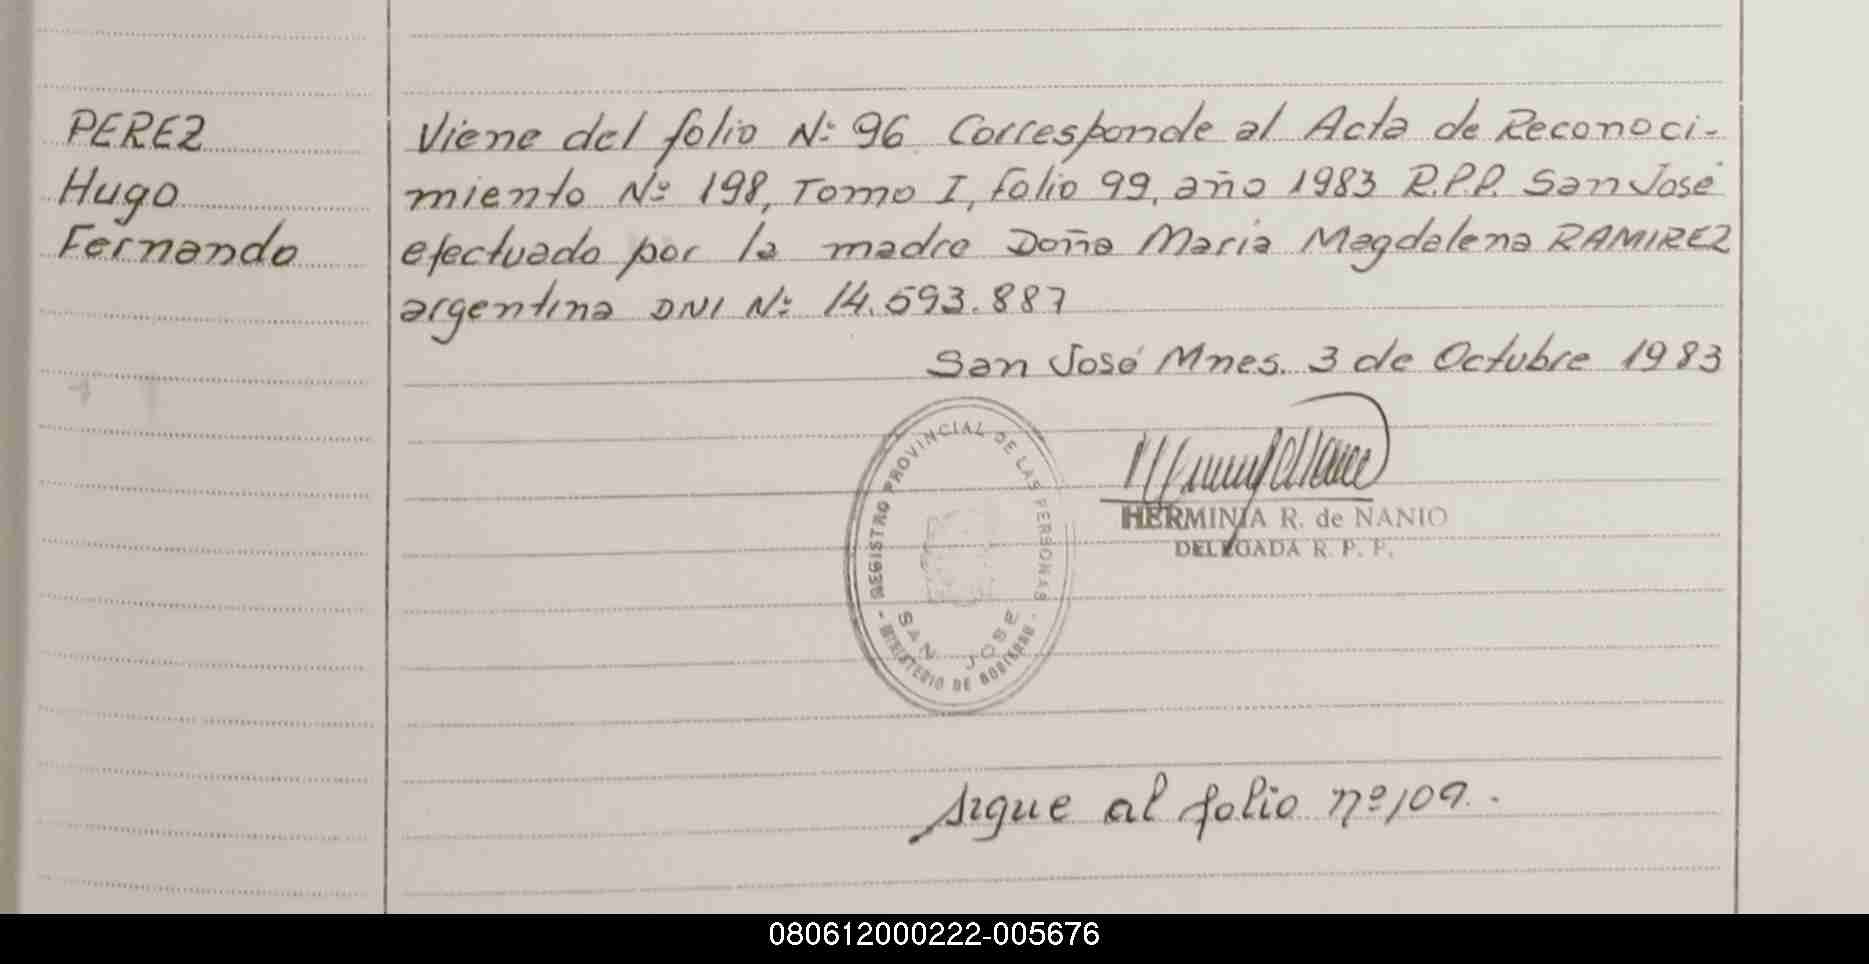 PEREZ
Hugo
Fernando
Viene del folio Nº 96. Corresponde al Acta de Reconoci-
miento Nº 198, Tomo I, Folio 99, año 1983 R.P.P. San José
efectuado por la madre Doña Maria Magdalena RAMIREZ
argentina DNI Nº 14.593.887
San José Mnes. 3 de Octubre 1983
REGISTRO PROVINCIAL DE LAS PERSONAS
SAN JOSE
- MINISTERIO DE GOBIERNO -
HERMINIA R. de NANIO
DELEGADA R. P. P.
sigue al folio nº 109.-
080612000222-005676